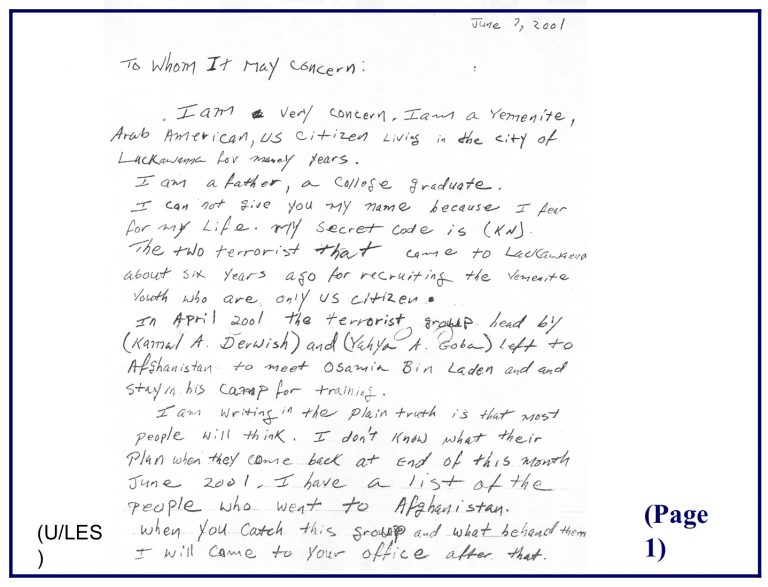 June ?, 2001
To Whom It May Concern:
. I am a very concern. I am a Yemenite,
Arab American, US Citizen Living in the city of
Lackawanna for maney years.
I am a father, a College graduate.
I can not give you my name because I fear
for my Life. my secret code is (KN).
The two terrorist that came to Lackawanna
about six years ago for recruiting the Yemenite
youth who are only US citizen.
In April 2001 the terrorist group head by
(Kamal A. Derwish) and (Yahya A. Goba) left to
Afghanistan to meet Osamia Bin Laden and and
stay in his Camp for training.
I am writing in the plain truth is that most
people will think. I don't Know what their
plan when they come back at end of this month
June 2001. I have a list of the
people who went to Afghanistan.
when you catch this group and what behand them
I will came to your office after that.
(U/LES
)
(Page
1)